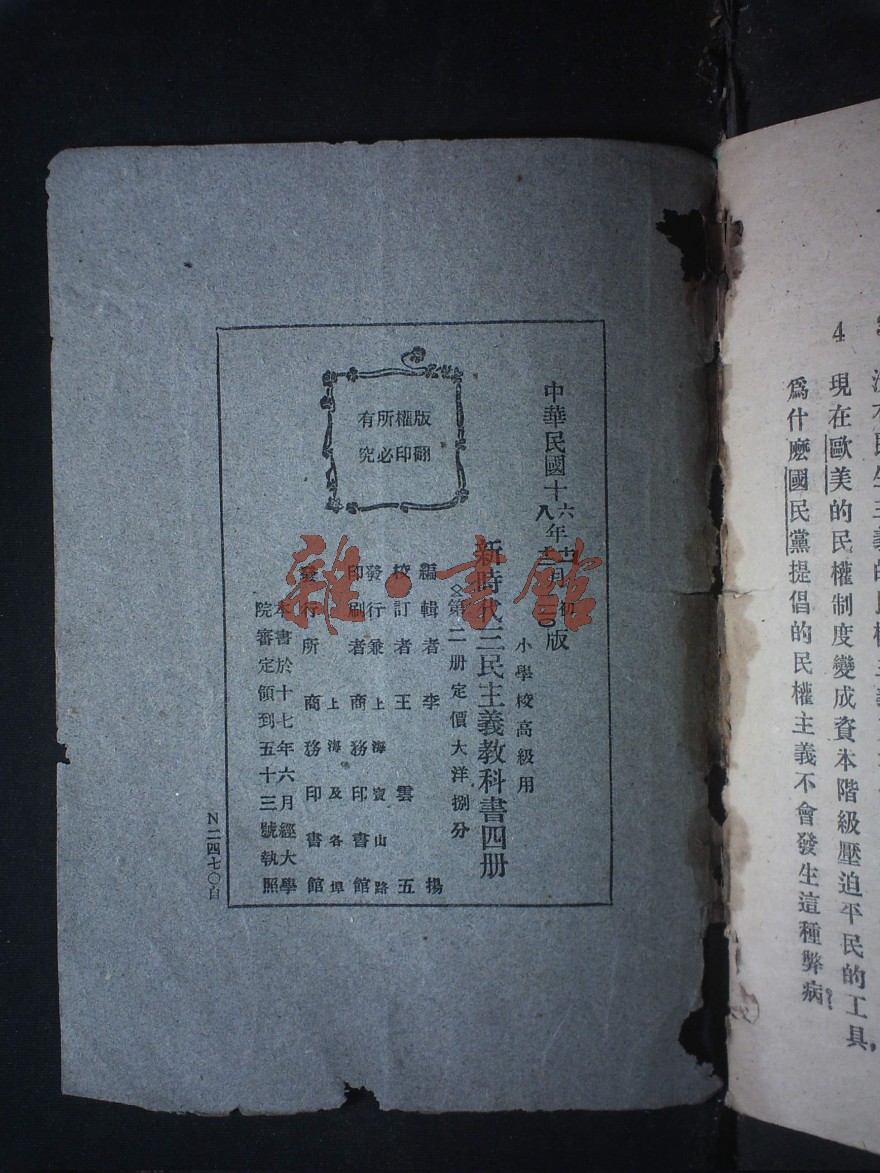 4 現在歐美的民權制度變成資本階級壓迫平民的工具,
爲什麽國民黨提倡的民權主義不會發生這種弊病?
中華民國十六年十二月初版
小學校高級用
新時代三民主義教科書四册
第二册定價大洋捌分
編輯者 李揚
校訂者 王雲五
發行兼印刷者 上海寶山路 商務印書館
發行所 上海及各埠 商務印書館
本書於十七年六月經大學
院審定領到五十三號執照
版權所有
翻印必究
N二四七〇白
雜·書館